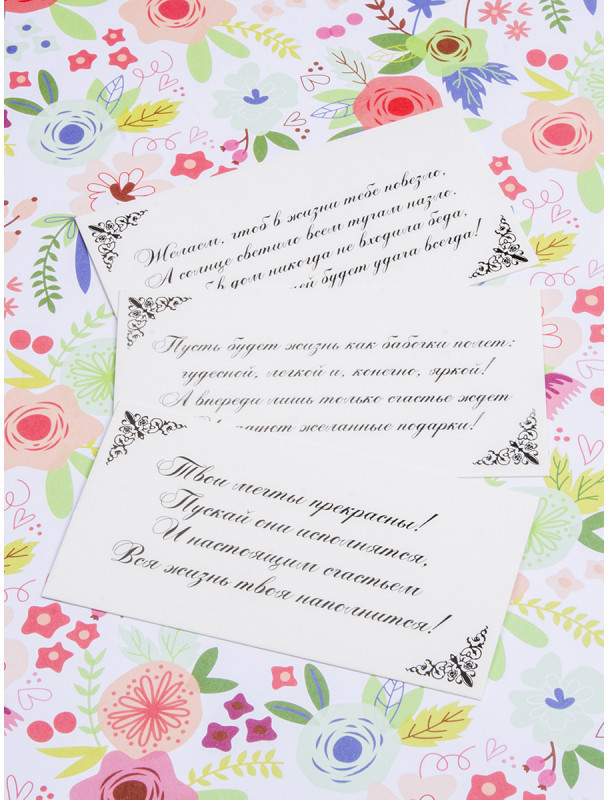 Желаем, чтоб в жизни тебе повезло,
А солнце светило всем тучам назло.
б в дом никогда не входила беда,
ей будет удача всегда!
Пусть будет жизнь как бабочки полет:
чудесной, легкой и, конечно, яркой!
А впереди лишь только счастье ждет
желанные подарки!
Твои мечты прекрасны!
Пускай они исполнятся,
И настоящим счастьем
Вся жизнь твоя наполнится!